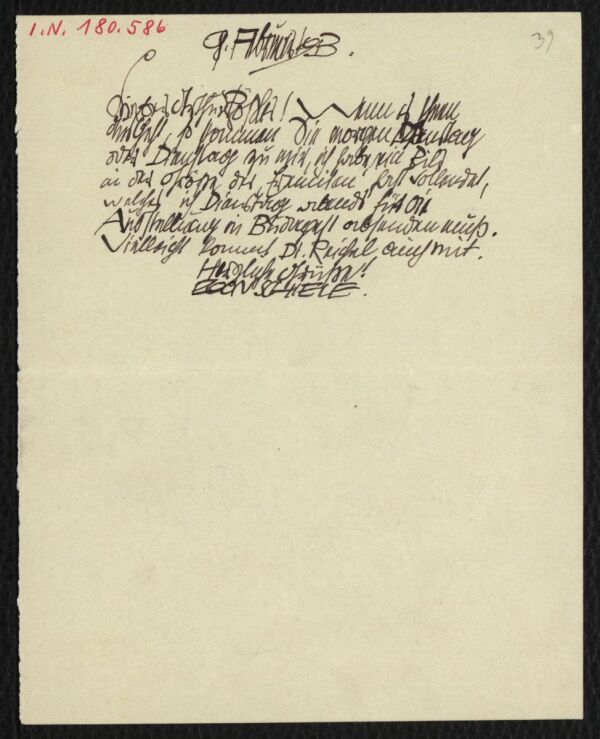 I.N. 180.586
39
9. Februar 1913.
Lieber Arthur Rößler! Wenn es Ihnen
möglich, so kommen Sie morgen
oder Dienstag zu mir, ich habe ein Bild
in der Größe der „Eremiten“ fast vollendet,
welches ich Dienstag abends für die
Ausstellung in Budapest absenden muß.
Vielleicht kommt Dr. Reichel auch mit.
Herzliche Grüße!
EGON SCHIELE.